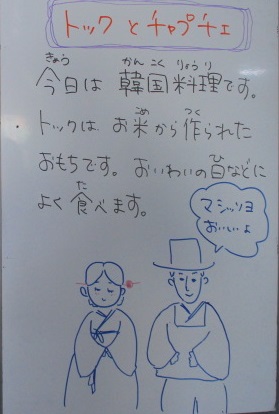 トック と チャプチェ
きょう かんこくりょうり
今日は 韓国料理です。
こめ つく
・トックは お米から作られた
ひ
おもちです。おいわいの日などに
た
よく食べます。
マシッソヨ
おいしいよ